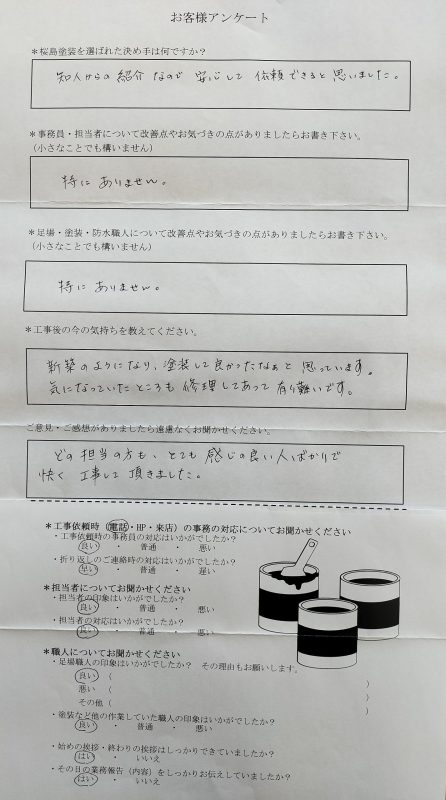 お客様アンケート
＊桜島塗装を選ばれた決め手は何ですか？
知人からの紹介なので 安心して 依頼できると思いました。
＊事務員・担当者について改善点やお気づきの点がありましたらお書き下さい。
（小さなことでも構いません）
特にありません。
＊足場・塗装・防水職人について改善点やお気づきの点がありましたらお書き下さい。
（小さなことでも構いません）
特にありません。
＊工事後の今の気持ちを教えてください。
新築のようになり、塗装して良かったなぁと思っています。
気になっていたところも修理してあって有り難いです。
ご意見・ご感想がありましたら遠慮なくお聞かせください。
どの担当の方も、とても感じの良い人ばかりで
快く工事して頂きました。
＊工事依頼時（電話・HP・来店）の事務の対応についてお聞かせください
・工事依頼時の事務員の対応はいかがでしたか？
良い ・ 普通 ・ 悪い
・折り返しのご連絡時の対応はいかがでしたか？
早い ・ 普通 ・ 遅い
＊担当者についてお聞かせください
・担当者の印象はいかがでしたか？
良い ・ 普通 ・ 悪い
・担当者の対応はいかがでしたか？
良い ・ 普通 ・ 悪い
＊職人についてお聞かせください
・足場職人の印象はいかがでしたか？ その理由もお願いします。
良い （ ）
悪い （ ）
その他（ ）
・塗装など他の作業していた職人の印象はいかがでしたか？
良い ・ 普通 ・ 悪い
・始めの挨拶・終わりの挨拶はしっかりできていましたか？
はい ・ いいえ
・その日の業務報告（内容）をしっかりお伝えしていましたか？
はい ・ いいえ